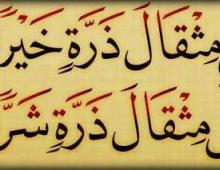 مِثْقَالَ ذَرَّةٍ خَيْر
مِثْقَالَ ذَرَّةٍ شَرّ